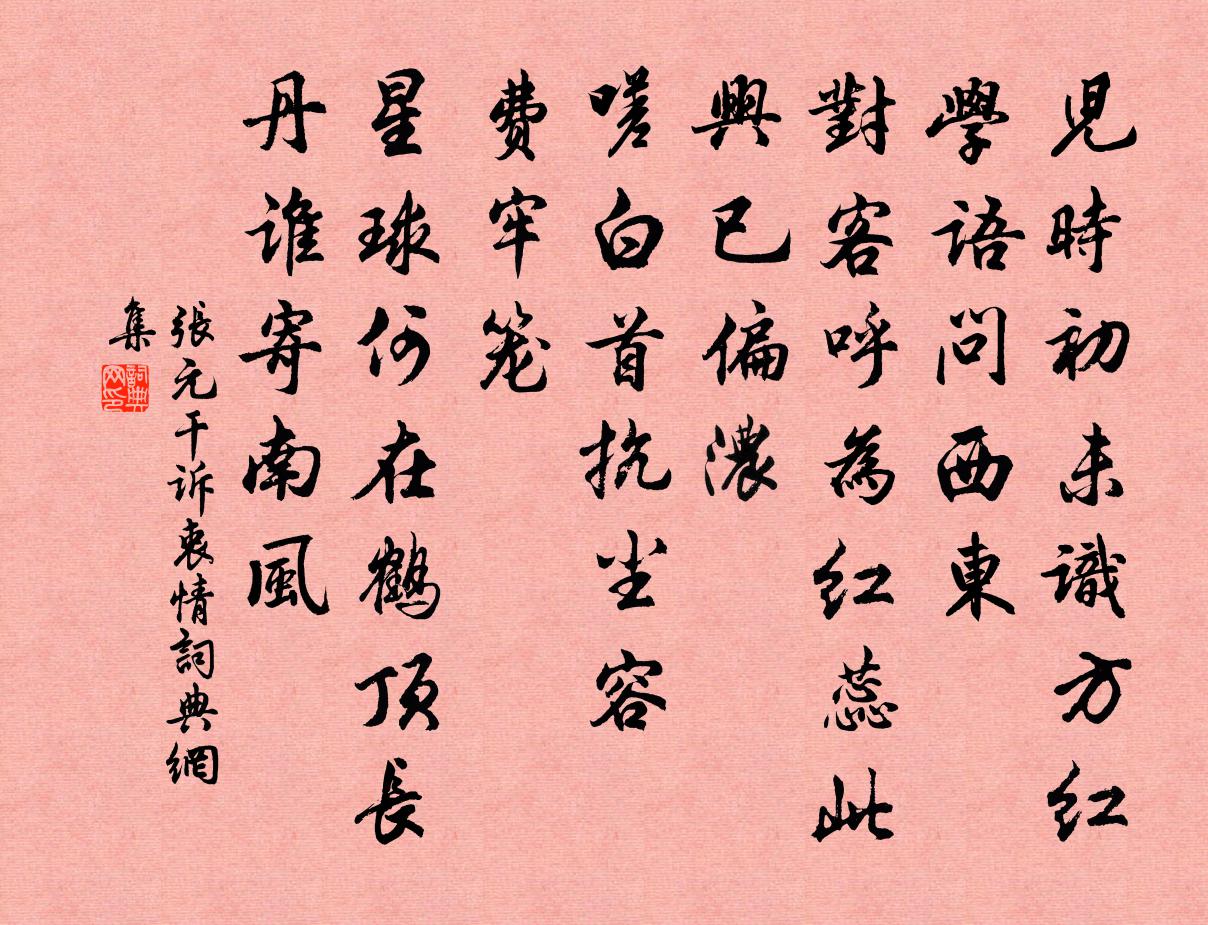 児時初未識方紅
學語問西東
對客呼為紅蕊此
興已偏濃
嗟白首抗尘容
費牢笼
星球何在鶴頂長
丹谁寄南風
張元干诉衷情詞典網
集
詞典网印